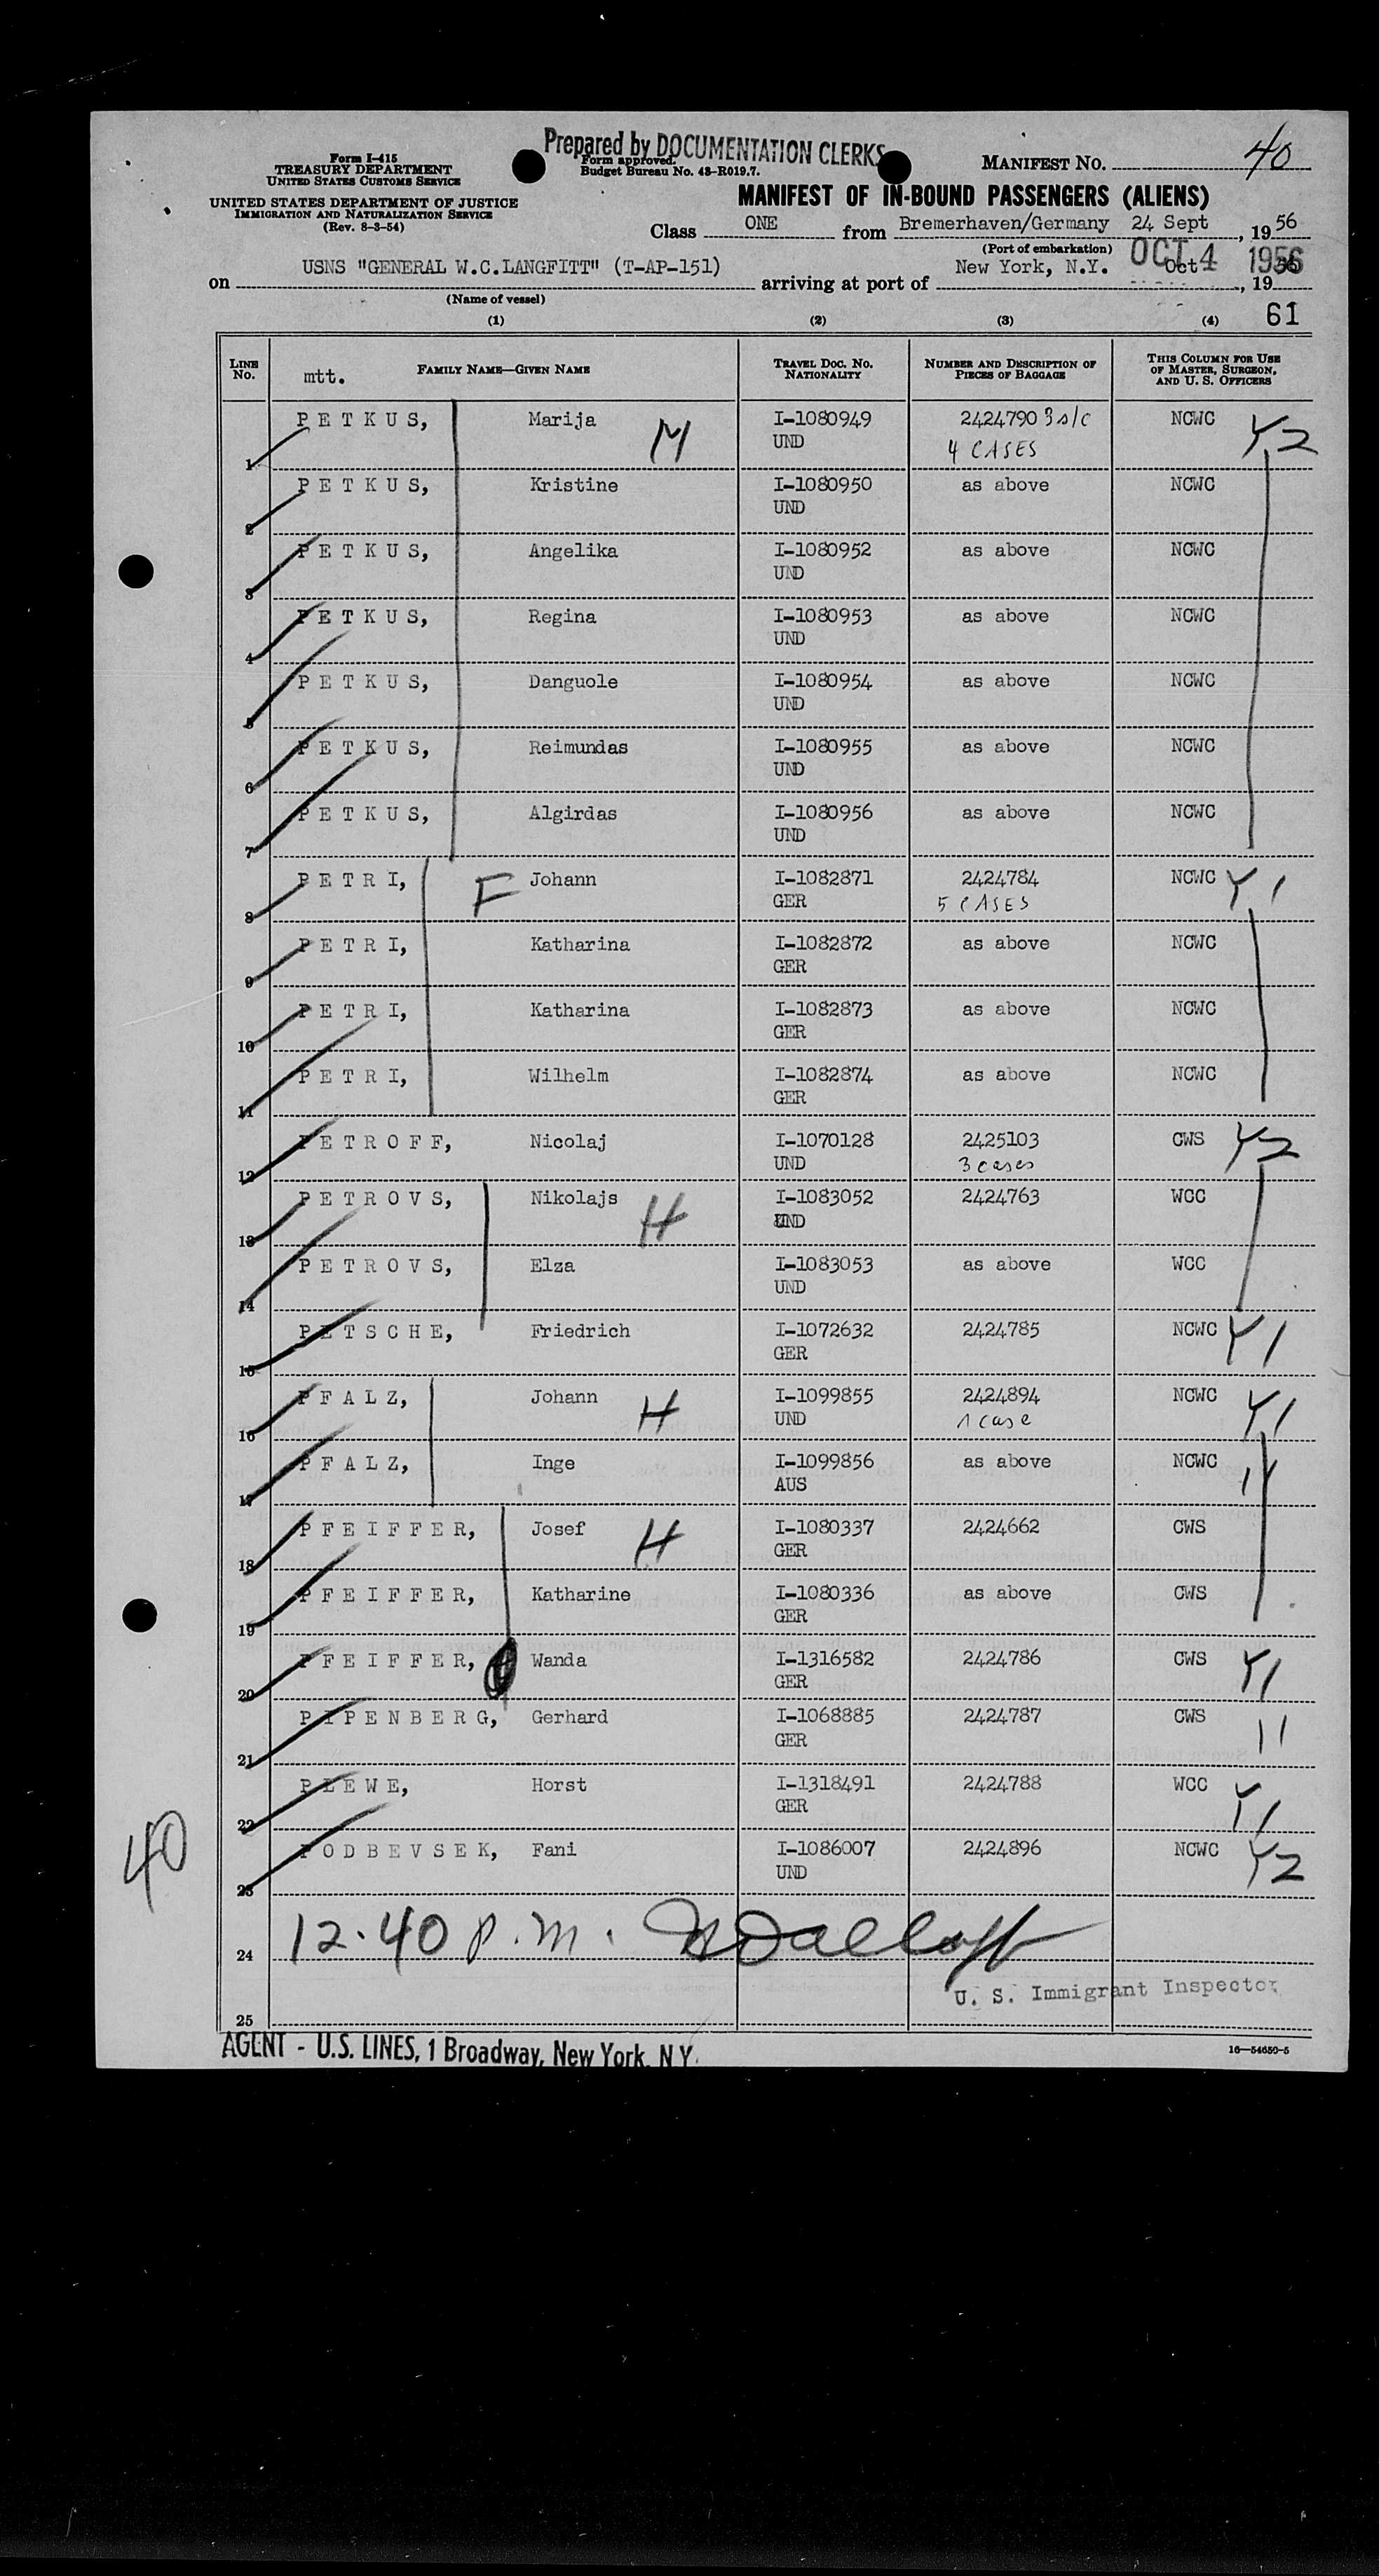 Prepared by DOCUMENTATION CLERKS
Form I-415
TREASURY DEPARTMENT
UNITED STATES CUSTOMS SERVICE
Form approved.
Budget Bureau No. 43-R019.7.
MANIFEST NO. 40
UNITED STATES DEPARTMENT OF JUSTICE
IMMIGRATION AND NATURALIZATION SERVICE
(Rev. 8-3-54)
MANIFEST OF IN-BOUND PASSENGERS (ALIENS)
Class ONE from Bremerhaven/Germany 24 Sept, 1956
(Port of embarkation)
on USNS "GENERAL W.C.LANGFITT" (T-AP-151) arriving at port of New York, N.Y. Oct 4, 19
OCT 4 1956
(Name of vessel)
(1) (2) (3) (4) 61
LINE No. mtt. FAMILY NAME—GIVEN NAME TRAVEL DOC. NO. NATIONALITY NUMBER AND DESCRIPTION OF PIECES OF BAGGAGE THIS COLUMN FOR USE OF MASTER, SURGEON, AND U. S. OFFICERS
1 PETKUS, Marija M I-1080949 2424790 3 s/c NCWC Y2
UND 4 CASES
2 PETKUS, Kristine I-1080950 as above NCWC
UND
3 PETKUS, Angelika I-1080952 as above NCWC
UND
4 PETKUS, Regina I-1080953 as above NCWC
UND
5 PETKUS, Danguole I-1080954 as above NCWC
UND
6 PETKUS, Reimundas I-1080955 as above NCWC
UND
7 PETKUS, Algirdas I-1080956 as above NCWC
UND
8 PETRI, F Johann I-1082871 2424784 NCWC Y1
GER 5 CASES
9 PETRI, Katharina I-1082872 as above NCWC
GER
10 PETRI, Katharina I-1082873 as above NCWC
GER
11 PETRI, Wilhelm I-1082874 as above NCWC
GER
12 PETROFF, Nicolaj I-1070128 2425103 CWS Y2
UND 3 cases
13 PETROVS, Nikolajs H I-1083052 2424763 WCC
UND
14 PETROVS, Elza I-1083053 as above WCC
UND
15 PETSCHE, Friedrich I-1072632 2424785 NCWC Y1
GER
16 PFALZ, Johann H I-1099855 2424894 NCWC Y1
UND 1 case
17 PFALZ, Inge I-1099856 as above NCWC
AUS
18 PFEIFFER, Josef H I-1080337 2424662 CWS
GER
19 PFEIFFER, Katharine I-1080336 as above CWS
GER
20 PFEIFFER, Wanda I-1316582 2424786 CWS Y1
GER
21 PIPENBERG, Gerhard I-1068885 2424787 CWS 11
GER
22 PLEWE, Horst I-1318491 2424788 WCC Y1
GER
23 PODBEVSEK, Fani I-1086007 2424896 NCWC Y2
UND
40
24 12.40 p.m.
U. S. Immigrant Inspector
25
AGENT - U.S. LINES, 1 Broadway, New York, N.Y.
16—54650-5